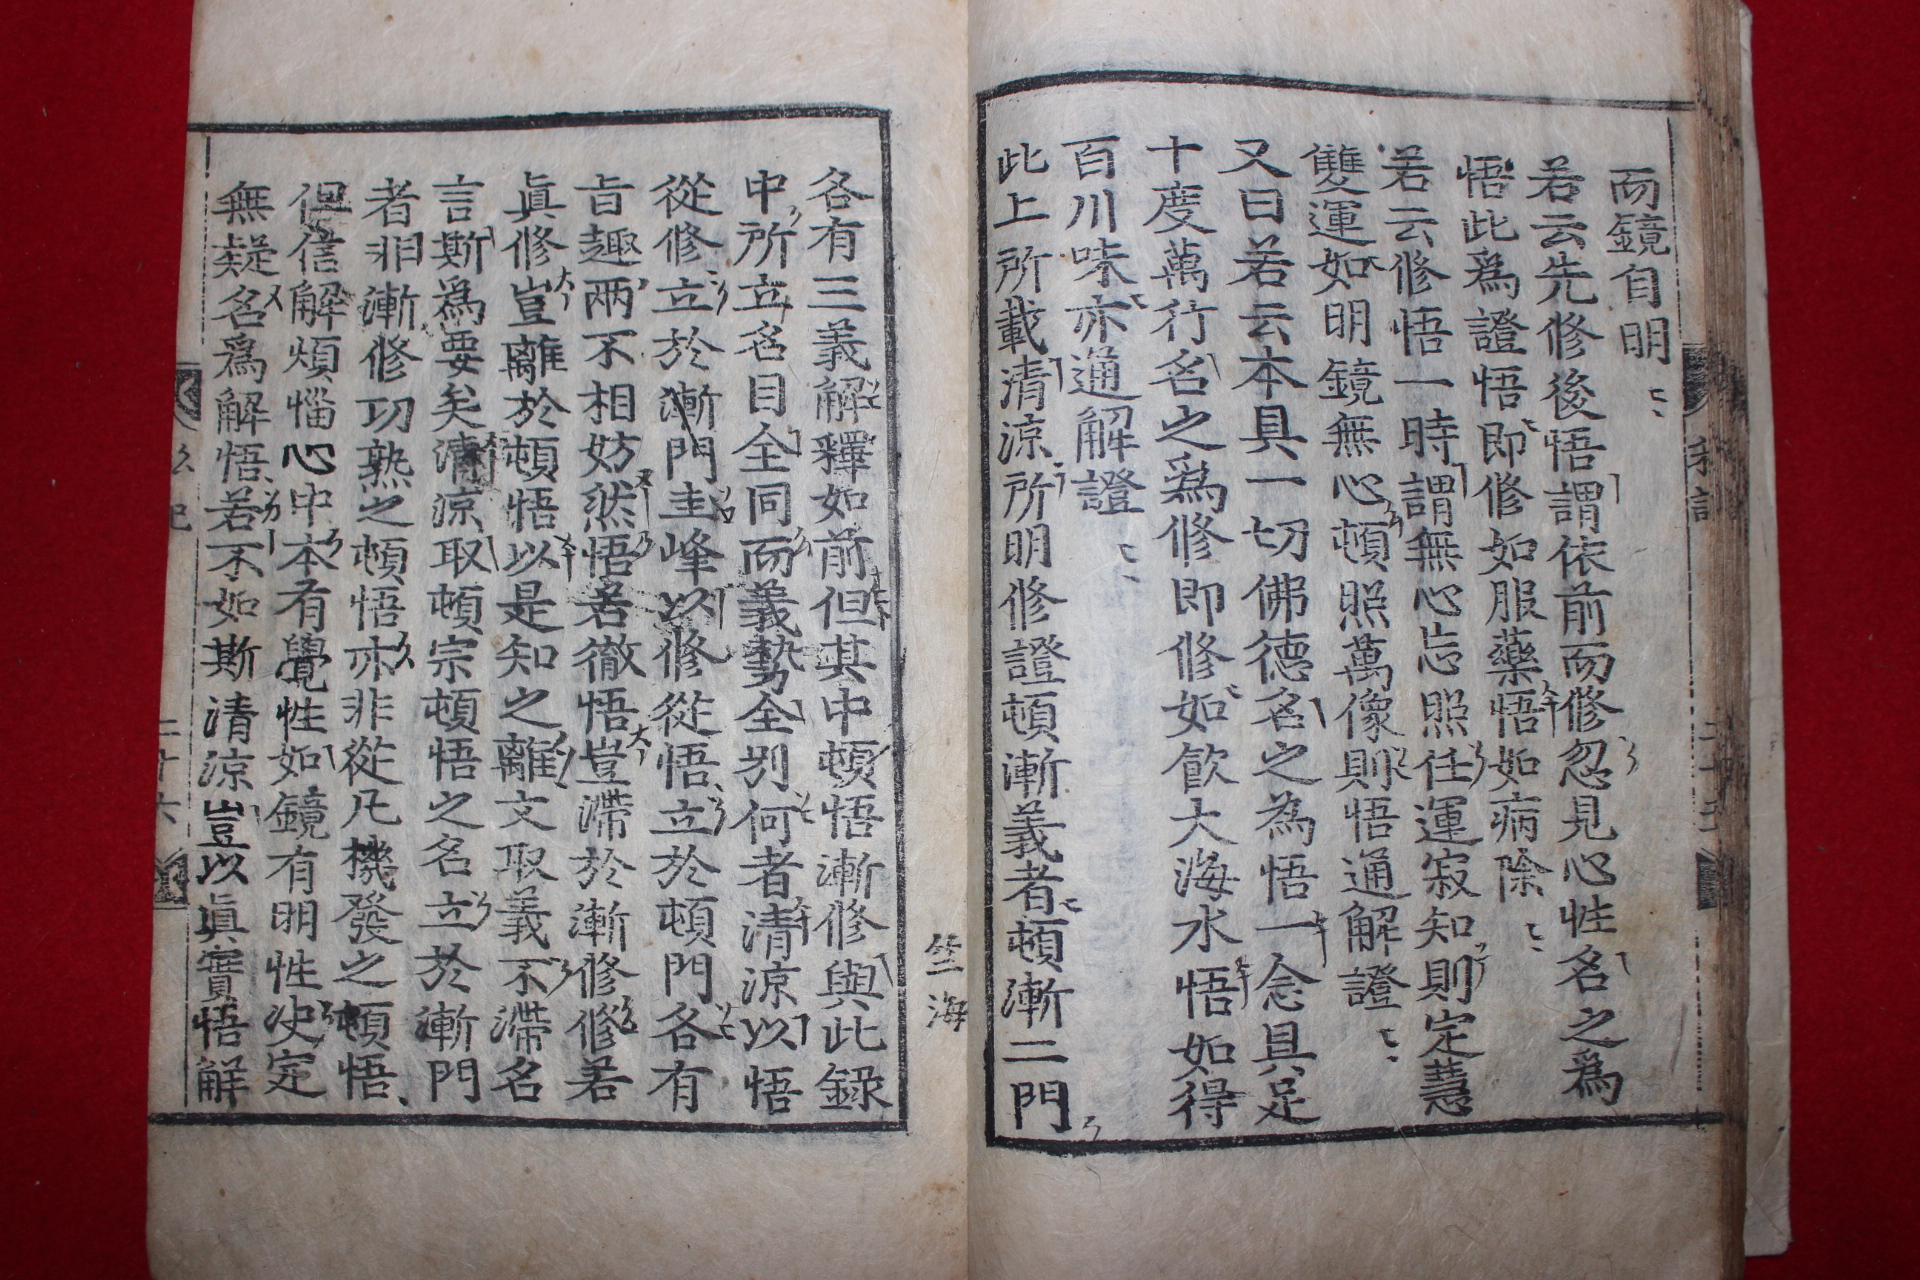 而鏡自明
若云先修後悟謂依前而修忽見心性名之爲
悟此爲證悟即修如服藥悟如病除
若云修悟一時謂無心忘照任運寂知則定慧
雙運如明鏡無心頓照萬像則悟通解證
又曰若云本具一切佛德名之為悟一念具足
十度萬行名之爲修即修如飮大海水悟如得
百川味亦通解證
此上所載清涼所明修證頓漸義者頓漸二門
各有三義解釋如前但其中頓悟漸修與此録
中所立名目全同而義勢全別何者清涼以悟
從修立於漸門圭峰以修從悟立於頓門各有
旨趣兩不相妨然悟若徹悟豈滯於漸修修若
眞修豈離於頓悟以是知之離文取義不滯名
言斯爲要矣清涼取頓宗頓悟之名立於漸門
者非漸修功熟之頓悟亦非從凡機發之頓悟
但信解煩惱心中本有覺性如鏡有明性決定
無疑名爲解悟若不如斯清涼豈以眞實悟解
二十六